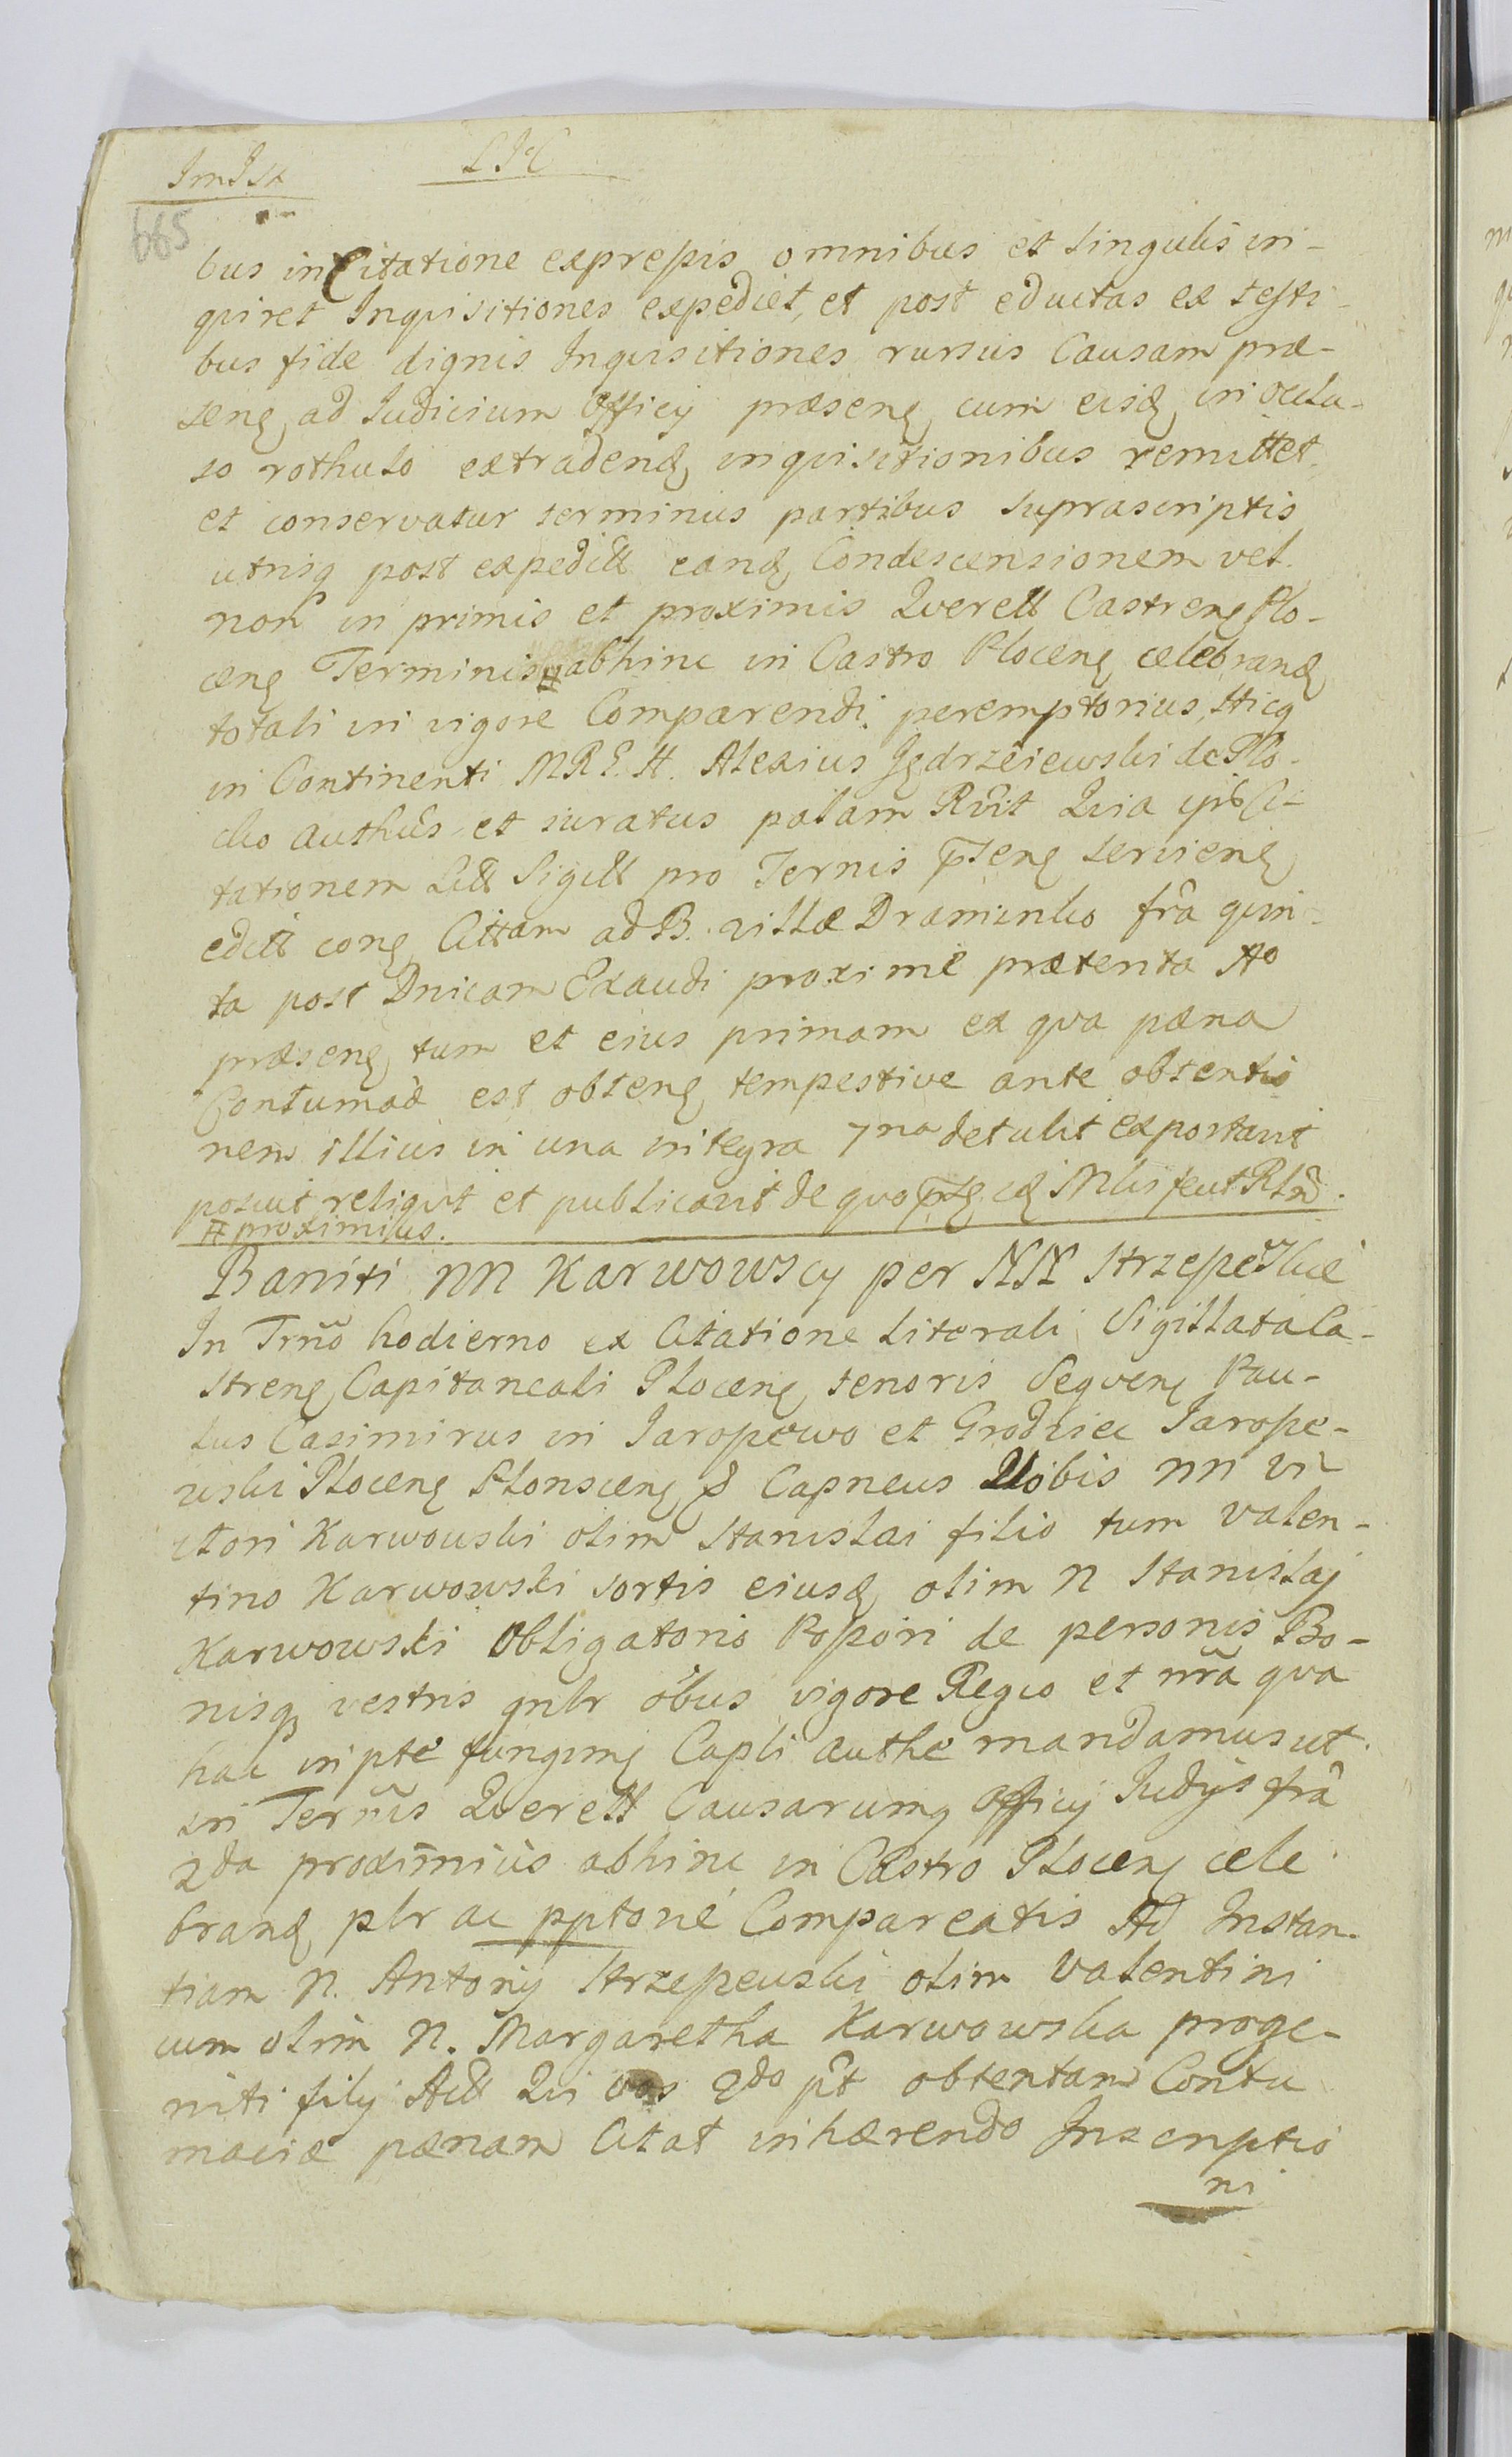 665
bus in Citatione expressis omnibus et singulis in-
quiret Inquisitiones expediet, et post eductas ex testi-
bus fide dignis Inquisitiones rursus Causam præ-
senę ad Iudicium Officij præsenę cum eisđ in oclu-
so rothulo extradenđ inquisitionibus remittet
et conservatur terminus partibus suprascriptis
utrisq post expedit eanđ Condescensionem vel
non in primis et proximis Querell Castrenę Plo-
cenę Terminis # abhinc in Castro Plocenę celebranđ
totali in vigore Comparendi peremptorius, Hicq
in Continenti MRE. H. Alexius Jędrzeiewski de Plo-
cko authus et iuratus palam Rvit Quia
tationem Litt Sigill pro Ternis senę servienę
edit conę Cittam ad B. villæ Draminko fra quin-
ta post Dnicam Exaudi proxime prætenta Ao
præsenę tum et eius primam ex qva pæna
Contumað est obtenę tempestive ante obtentio
nem illius in una integra 7na detulit exportavit
posuit reliqvt et publicavit de quo
# proximius.
Baniti NN Karwowscy per NN Strzepewskie
In Trno hodierno ex Citatione Literali Sigillata Ca-
strenę Capitaneali Plocenę tenoris Seqvenę Pau-
lus Casimirus in Jaropewo et Grodziec Jarope-
wski Plocenę Plonscenę & Capneus Uobis NN Vi-
ctori Karwowski olim Stanislai filio tum Valen-
tino Karwowski sortis eiusđ olim N Stanislaj
Karwowski Obligatorio Popori de personis Bo-
nisq vestris gnlr obus vigore Regio et nra qva
hac in pte fungimę Capli authe mandamus ut
in Ternis Querell Causarumq Officij Iudijs fra
2da proximius abhinc in Castro Plocenę cele
branđ plr ac pptorie Compareatis Ad Instan-
tiam N. Antonij Strzepewski olim Valentini
cum olim N. Margaretha Karwowska proge-
niti filij Act Qui vos 2do pt obtentam Contu
maciæ pænam Citat inhærendo Inscriptio
ni